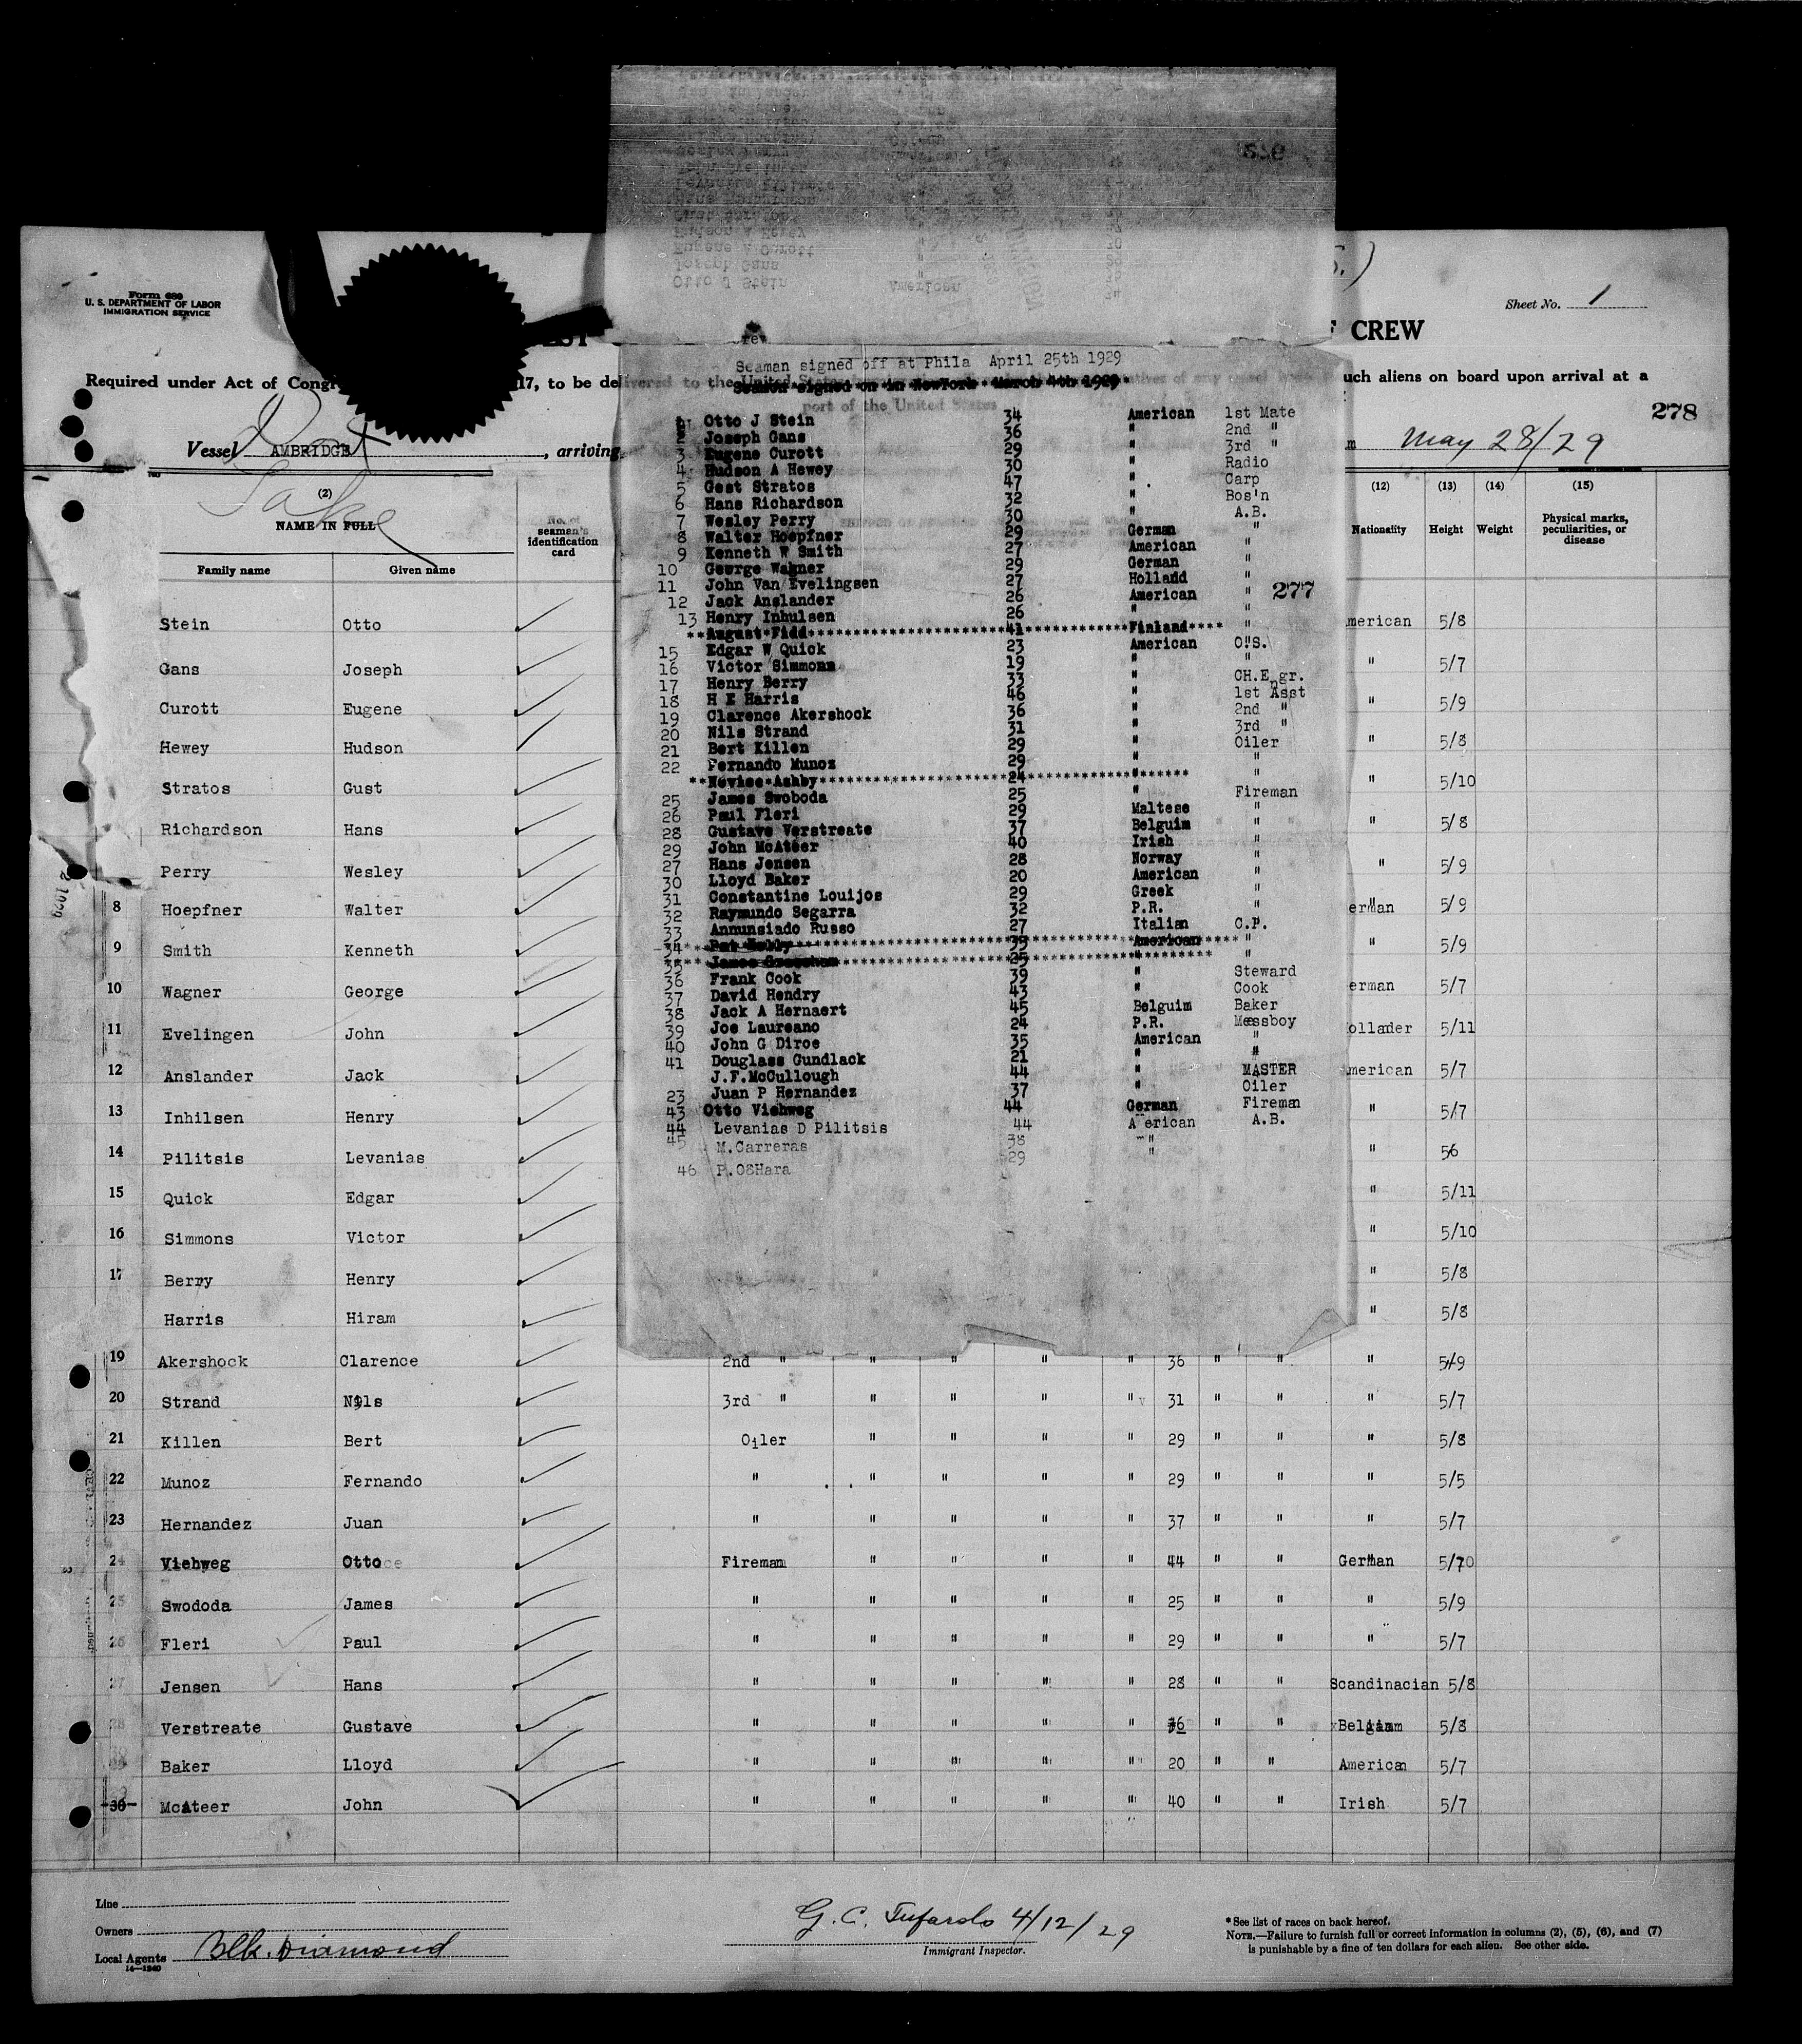 Form 680
U. S. DEPARTMENT OF LABOR
IMMIGRATION SERVICE
Sheet No. 1
CREW
Required under Act of Cong 17, to be delivered to the United uch aliens on board upon arrival at a
port of the United States
278
Vessel AMBRIDGE, arriving May 28/29
(2)
NAME IN FULL
Family name Given name
No. of seaman's identification card
(12) Nationality
(13) Height
(14) Weight
(15) Physical marks, peculiarities, or disease
Crew
Seaman signed off at Phila April 25th 1929
Seamen signed on in NewYork March 4th 1929
Otto J Stein 34 American 1st Mate
Joseph Gans 36 " 2nd "
3 Eugene Curott 29 " 3rd "
4 Hudson A Hewey 30 " Radio
5 Gest Stratos 47 " Carp
6 Hans Richardson 32 " Bos'n
7 Wesley Perry 30 " A.B.
8 Walter Hoepfner 29 German "
9 Kenneth W Smith 27 American "
10 George Wagner 29 German "
11 John Van Evelingsen 27 Holland "
12 Jack Anslander 26 American "
277
13 Henry Inhulsen 26 " "
**August*Fidd****41****Finland**** "
15 Edgar W Quick 23 American O.S.
16 Victor Simmons 19 " "
17 Henry Berry 33 " CH.Engr.
18 H E Harris 46 " 1st Asst
19 Clarence Akershock 36 " 2nd "
20 Nils Strand 31 " 3rd "
21 Bert Killen 29 " Oiler
22 Fernando Munoz 29 " "
**Novice*Ashby****24**** "
25 James Swoboda 25 " Fireman
26 Paul Fleri 29 Maltese "
28 Gustave Verstreate 37 Belguim "
29 John McAteer 40 Irish "
27 Hans Jensen 28 Norway "
30 Lloyd Baker 20 American "
31 Constantine Louijos 29 Greek "
32 Raymundo Segarra 32 P.R. "
33 Annunsiado Russo 27 Italian C.P.
34 39 American "
35 James 25 " "
36 Frank Cook 39 " Steward
37 David Hendry 43 " Cook
38 Jack A Hernaert 45 Belguim Baker
39 Joe Laureano 24 P.R. Messboy
40 John G Diroe 35 American "
41 Douglass Gundlack 21 " "
J.F.McCullough 44 " MASTER
23 Juan P Hernandez 37 " Oiler
43 Otto Viehweg 44 German Fireman
44 Levanias D Pilitsis 44 American A.B.
45 M.Carreras 38 "
46 P.O8Hara 29 "
Stein Otto merican 5/8
Gans Joseph " 5/7
Curott Eugene " 5/9
Hewey Hudson " 5/8
Stratos Gust " 5/10
Richardson Hans " 5/8
Perry Wesley " 5/9
8 Hoepfner Walter erman 5/9
9 Smith Kenneth " 5/9
10 Wagner George erman 5/7
11 Evelingen John ollander 5/11
12 Anslander Jack merican 5/7
13 Inhilsen Henry " 5/7
14 Pilitsis Levanias " 56
15 Quick Edgar " 5/11
16 Simmons Victor " 5/10
17 Berry Henry " 5/8
Harris Hiram " 5/8
19 Akershock Clarence 2nd " " " " " 36 " " " 5/9
20 Strand Nils 3rd " " " " " 31 " " " 5/7
21 Killen Bert Oiler " " " " 29 " " " 5/8
22 Munoz Fernando " " " " " 29 " " " 5/5
23 Hernandez Juan " " " " " 37 " " " 5/7
24 Viehweg Otto Fireman " " " " 44 " " German 5/70
25 Swododa James " " " " " 25 " " " 5/9
26 Fleri Paul " " " " " 29 " " " 5/7
27 Jensen Hans " " " " " 28 " " Scandinacian 5/8
28 Verstreate Gustave " " " " " 36 " " Belgiam 5/8
Baker Lloyd " " " " " 20 " " American 5/7
30 McAteer John " " " " " 40 " " Irish 5/7
Line
Owners
Local Agents Blk. Diamond
14—1240
G. C. Tufarolo 4/12/29
Immigrant Inspector.
* See list of races on back hereof.
NOTE.—Failure to furnish full or correct information in columns (2), (5), (6), and (7)
is punishable by a fine of ten dollars for each alien. See other side.